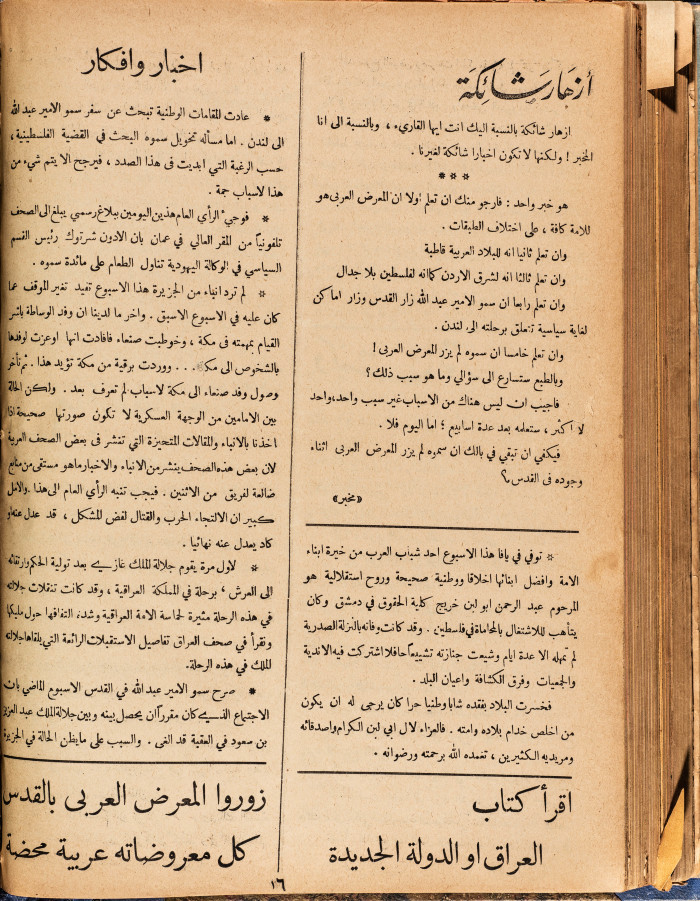 أزهار شائكة
ازهار شائكة بالنسبة اليك انت ايها القاريء ، وبالنسبة الى انا
المخبر ! ولكنها لا تكون اخبارا شائكة لغيرنا .
* * *
هو خبر واحد : فارجو منك ان تعلم اولا ان المعرض العربي هو
للامة كافة ، على اختلاف الطبقات .
وان تعلم ثانيا انه للبلاد العربية قاطبة
وان تعلم ثالثا انه لشرق الاردن كما انه لفلسطين بلا جدال
وان تعلم رابعا ان سمو الامير عبد الله زار القدس وزار اماكن
لغاية سياسية تتعلق برحلته الى لندن .
وان تعلم خامسا ان سموه لم يزر المعرض العربى !
وبالطبع ستسارع الى سؤالي وما هو سبب ذلك ؟
فاجيب ان ليس هناك من الاسباب غير سبب واحد ، واحد
لا اكبر ، ستعلمه بعد عدة اسابيع ؛ اما اليوم فلا .
فيكفي ان تبقي في بالك ان سموه لم يزر المعرض العربى اثناء
وجوده فى القدس ؟
«مخبر»
* توفي في يافا هذا الاسبوع احد شباب العرب من خيرة ابناء
الامة وافضل ابنائها اخلاقا ووطنية صحيحة وروح استقلالية هو
المرحوم عبد الرحمن ابو لبن خريج كلية الحقوق في دمشق وكان
يتأهب للاشتغال بالمحاماة في فلسطين . وقد كانت وفاته بالنزلة الصدرية
لم تمهله الا عدة ايام وشيعت جنازته تشييعاً حافلا اشتركت فيه الاندية
والجمعيات وفرق الكشافة واعيان البلد .
فخسرت البلاد بفقده شابا وطنيا حرا كان يرجى له ان يكون
من اخلص خدام بلاده وامته . فالعزاء لال ابي لبن الكرام واصدقائه
ومريديه الكثيرين ، تغمده الله برحمته ورضوانه .
اقرأ كتاب
العراق او الدولة الجديدة
اخبار وافكار
* عادت المقامات الوطنية تبحث عن سفر سمو الامير عبد الله
الى لندن . اما مسأله تخويل سموه البحث في القضية الفلسطينية ،
حسب الرغبة التي ابديت فى هذا الصدد ، فيرجح الا يتم شيء من
هذا لاسباب جمة .
* فوجئ الرأي العام هذين اليومين ببلاغ رسمي يبلغ الى الصحف
تلفونياً من المقر العالي في عمان بان الادون شرتوك رئيس القسم
السياسي في الوكالة اليهودية تناول الطعام على مائدة سموه .
* لم ترد انباء من الجزيرة هذا الاسبوع تفيد تغير الموقف عما
كان عليه في الاسبوع الاسبق . واخر ما لدينا ان وفد الوساطة باشر
القيام بمهمته فى مكة ، وخوطبت صنعاء فافادت انها اوعزت لوفدها
بالشخوص الى مكة . . . ووردت برقية من مكة تؤيد هذا . ثم تأخر
وصول وفد صنعاء الى مكة لاسباب لم تعرف بعد . ولكن الحالة
بين الامامين من الوجهة العسكرية لا تكون صورتها صحيحة اذا
اخذنا بالانباء والمقالات المتحيزة التي تنشر فى بعض الصحف العربية
لان بعض هذه الصحف ينشر من الانباء والاخبار ما هو مستقى من منابع
ضالعة لفريق من الاثنين . فيجب تنبه الرأي العام الى هذا . والامل
كبير ان الالتجاء الحرب والقتال لفض المشكل ، قد عدل عنه او
كاد يعدل عنه نهائيا .
* لاول مرة يقوم جلالة الملك غازي بعد تولية الحكم وارتقائه
الى العرش ، برحلة في المملكة العراقية ، وقد كانت تنقلات جلالته
في هذه الرحلة مثيرة لحماسة الامة العراقية وشدة التفافها حول مليكها
ونقرأ في صحف العراق تفاصيل الاستقبلات الرائعة التي يلقاها جلالة
الملك في هذه الرحلة .
* صرح سمو الامير عبد الله في القدس الاسبوع الماضي بان
الاجتماع الذي كان مقرراً ان يحصل بينه وبين جلالة الملك عبد العزيز
بن سعود في العقبة قد الغى . والسبب على ما يظن الحالة في الجزيرة
زوروا المعرض العربى بالقدس
كل معروضاته عربية محضة
١٦